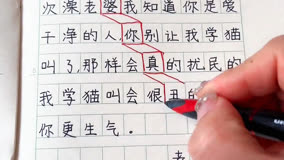 次澡老婆我知道你是爱
干净的人你别让我学猫
叫了,那样会真的扰民的
我学猫叫会很丑的
你更生气.